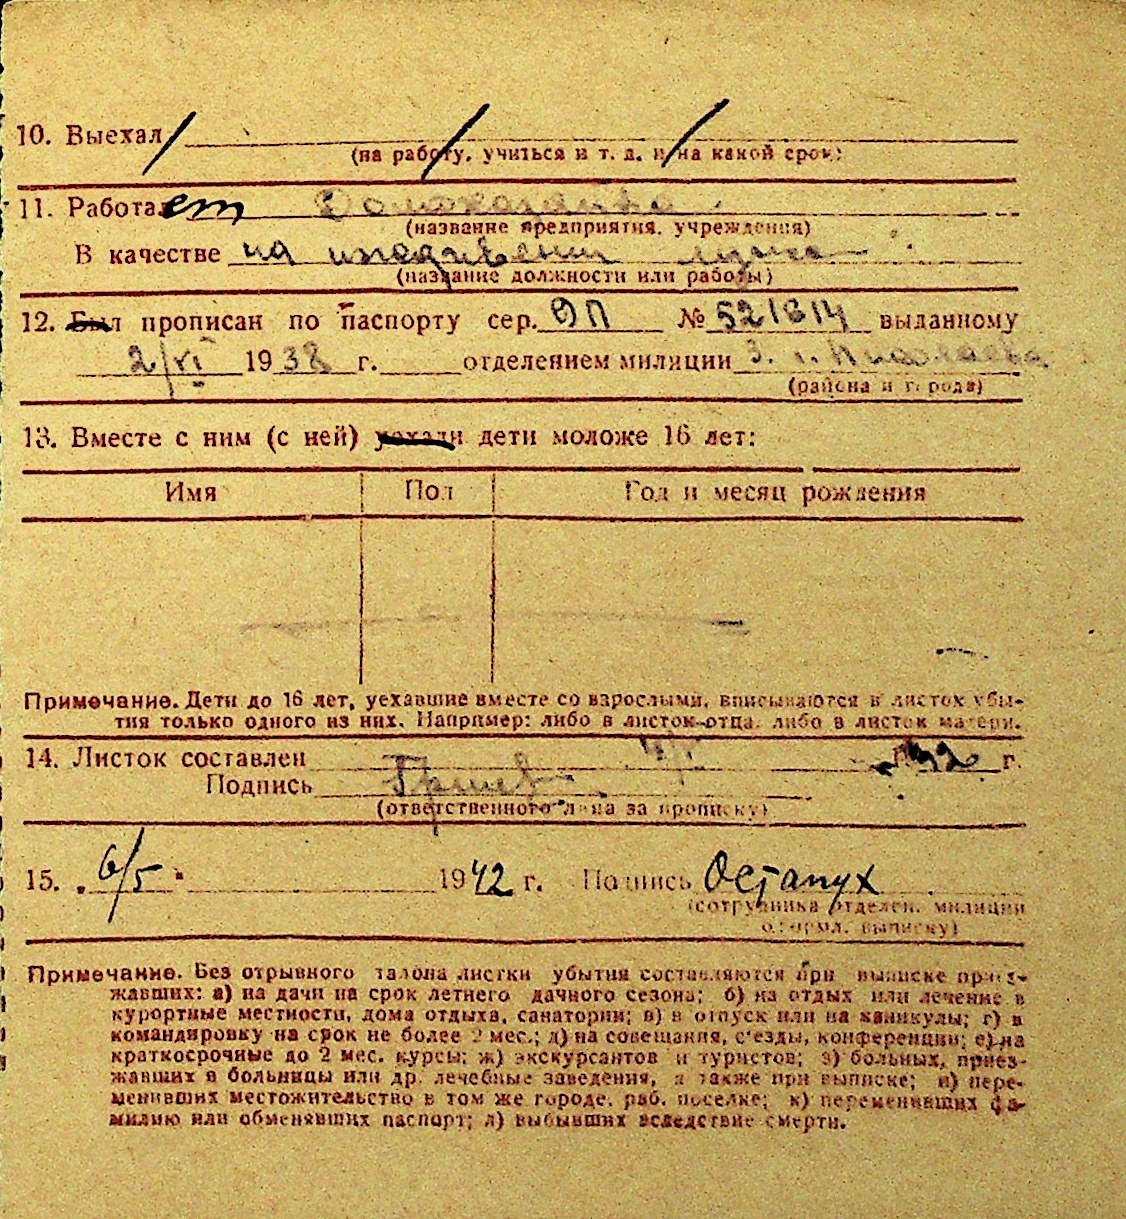 10. Выехал
(на работу, учиться и т. д. и на какой срок)
11. Работает Домохозяйка
(название предприятия, учреждения)
В качестве на иждивении мужа
(название должности или работы)
12. Был прописан по паспорту сер. ЭП № 521614 выданному
2/VI 1938 г. отделением милиции 3. г. Николаева
(района и города)
13. Вместе с ним (с ней) уехали дети моложе 16 лет:
Имя Пол Год и месяц рождения
Примечание. Дети до 16 лет, уехавшие вместе со взрослыми, вписываются в листок убы-
тия только одного из них. Например: либо в листок отца, либо в листок матери.
14. Листок составлен 42 г.
Подпись
(ответственного лица за прописку)
15. „6/5" 1942 г. Подпись Остапух
(сотрудника отделен. милиции
оформл. выписку)
Примечание. Без отрывного талона листки убытия составляются при выписке приез-
жавших: а) на дачи на срок летнего дачного сезона; б) на отдых или лечение в
курортные местности, дома отдыха, санатории; в) в отпуск или на каникулы; г) в
командировку на срок не более 2 мес.; д) на совещания, с'езды, конференции; е) на
краткосрочные до 2 мес. курсы; ж) экскурсантов и туристов; з) больных, приез-
жавших в больницы или др. лечебные заведения, а также при выписке; и) пере-
менивших местожительство в том же городе, раб. поселке; к) переменивших фа-
милию или обменявших паспорт; л) выбывших вследствие смерти.